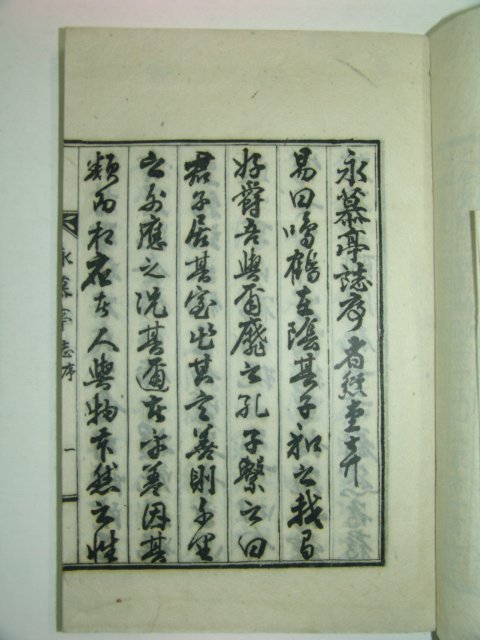 永慕亭誌序
易曰鳴鶴在陰其子和之我有
好爵吾與爾靡之孔子繫之曰
君子居其室出其言善則千里
之外應之况其邇者乎善因其
類而相應者人與物然之性
永慕亭誌序 一